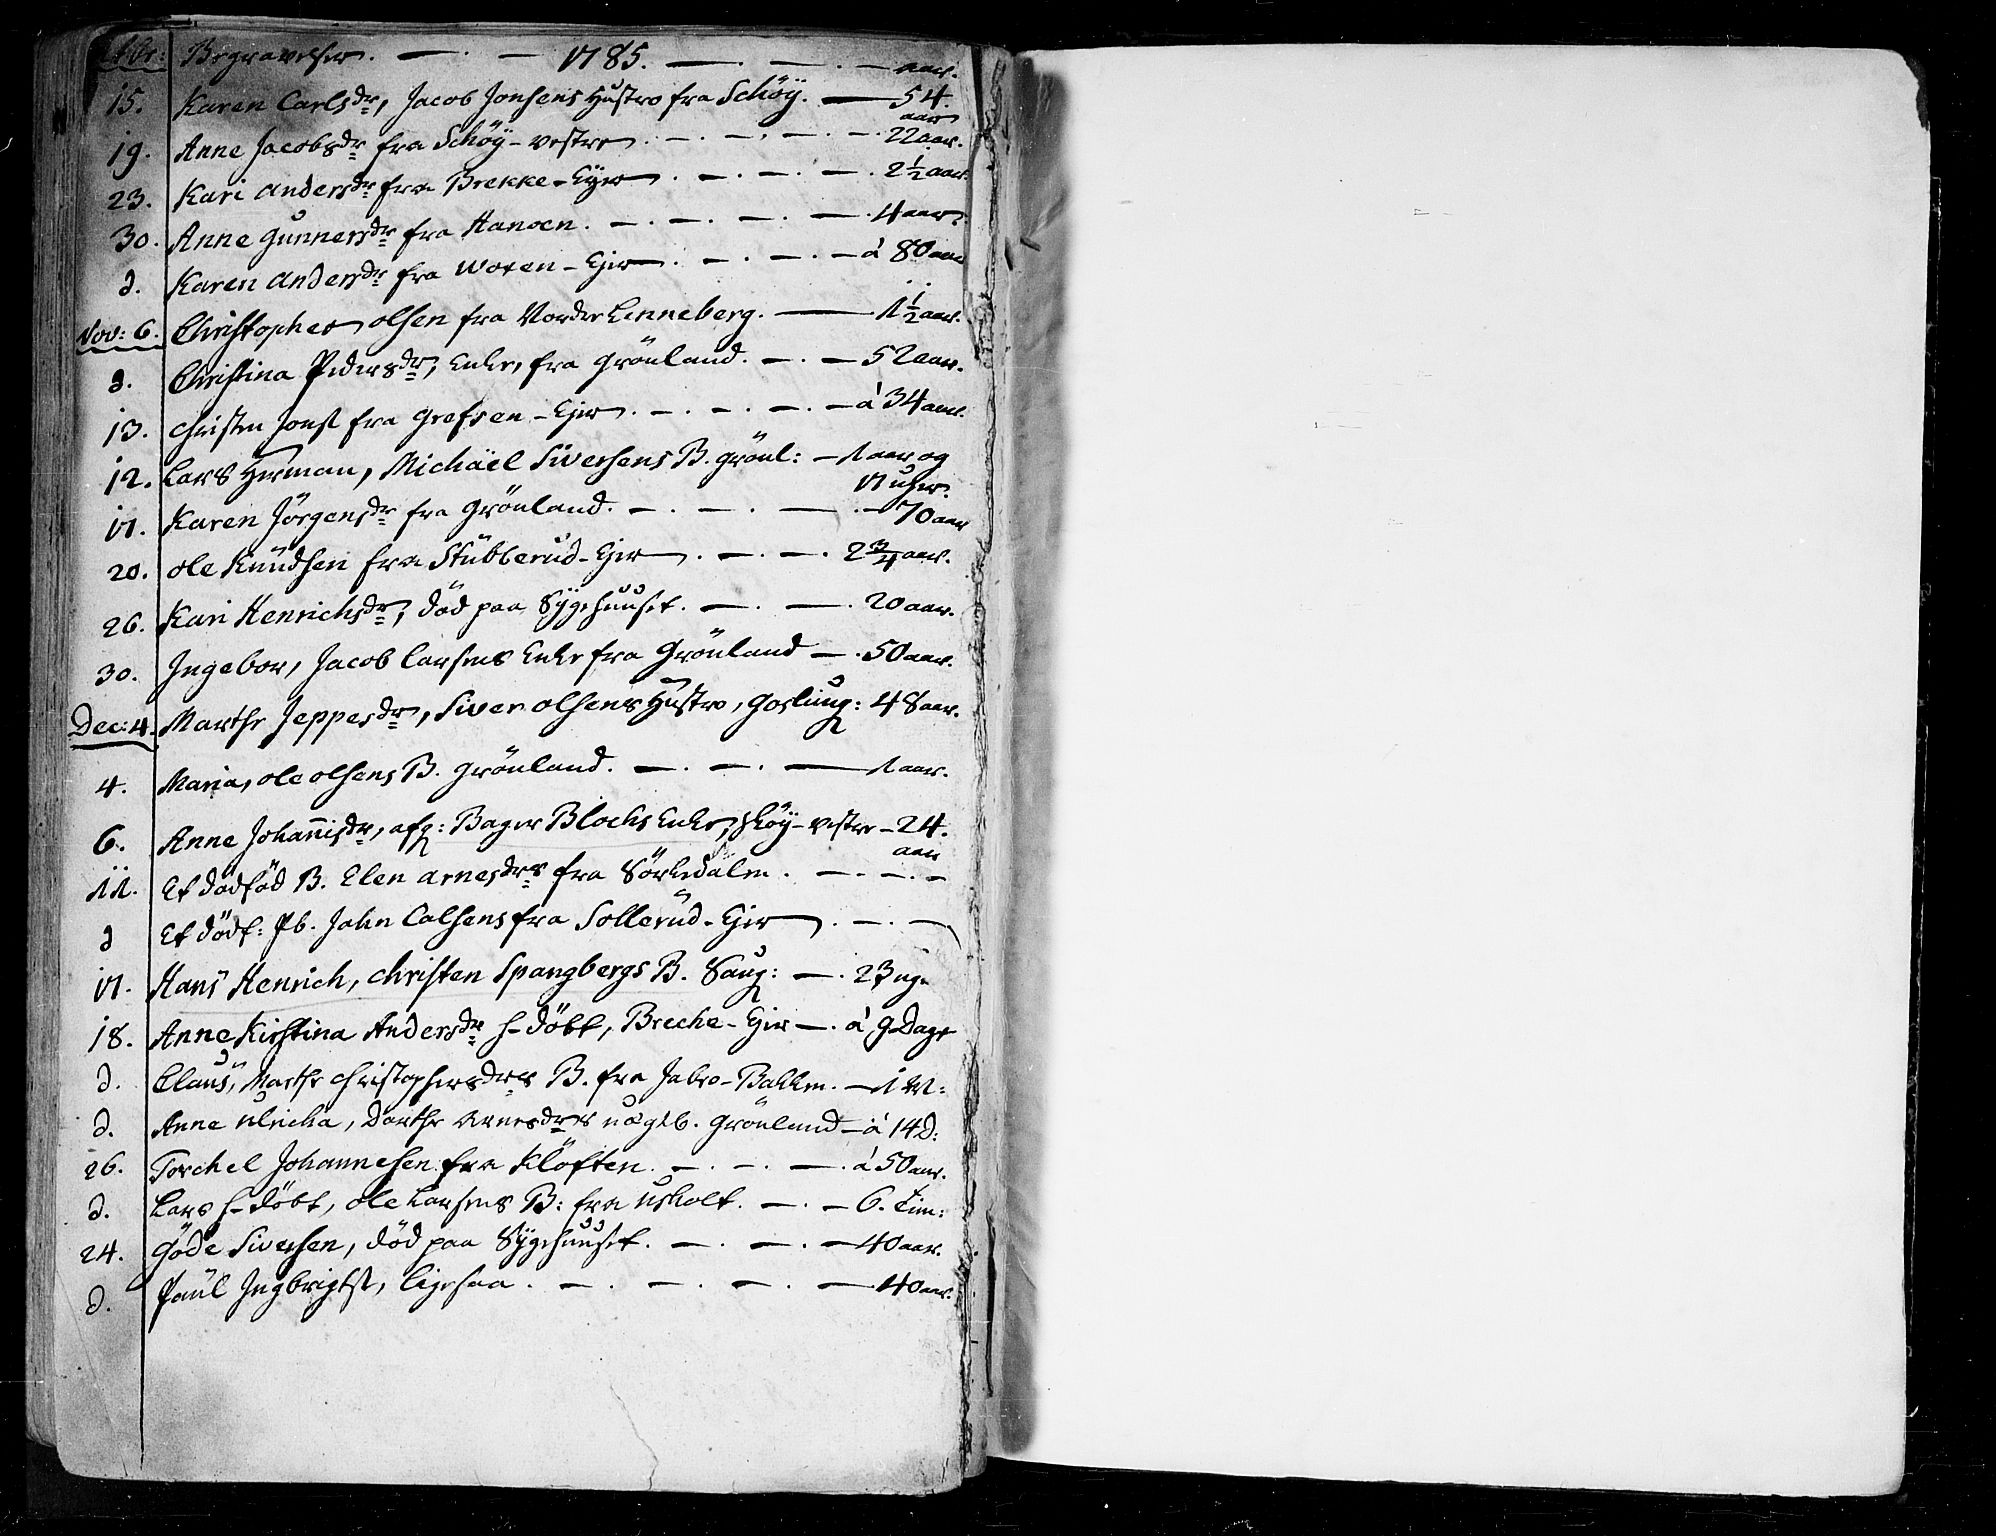 Octbr: Begravelser. — . — 1785. — . — . — aar.
15. Karen Carlsdr, Jacob Jonsens Hustro fra Schöÿ. — 54. aar
19. Anne Jacobsdr fra Schöÿ-vestre . — . — . — . 22 aar.
23. Kari Andersdr fra Brekke-Eÿer . — . — . — . 2 1/2 aar.
30. Anne Gunnersdr fra Hanoen. — . — . — . 4 aar.
d. Karen Andersdr fra Woxen-Ejer . — . — . — á 80 aar
Nov: 6. Christopher Olsen fra Norder Linneberg. — 1 1/2 aar.
d. Christina Pedersdr, Enke, fra Grönland. — . — 52 aar.
13. Christen Jonss fra Grefsen-Ejer. — . — . — á 34 aar.
12. Lars Herman, Michäel Siversens B. Grönl: — 1 aar og
17 uger.
17. Karen Jörgensdr fra Grönland. — . — . — . — 70 aar
20. Ole Knüdsen fra Stübberud-Ejer . — . — . 2 3/4 aar.
26. Kari Henrichsdr, död paa Sÿgehuuset. — . — . 20 aar.
30. Ingebor, Jacob Larsens Enke fra Grönland — . 50 aar.
Dec: 4. Marthe Jeppesdr, Siver Olsens Hustro, Goslung: 48 aar.
4. Maria, Ole Olsens B. Grönland. — . — . — 1 aar.
6. Anne Johannisdr, afg: Bager Blochs Enke, Sköÿ-vestre — 24.
aar
11. Et dödföd B. Elen Arnesdrs fra Sörkedalen. — . — . —
d Et dödf: Pb. John Calsens fra Sollerud-Ejer . — . —
17. Hans Henrich, Christen Spangbergs B. Saug: — . 23 ug.
18. Anne Kirstina Andersdr h-döbt, Breche-Ejer — . á 9 Dage
d. Claus, Marthe Christophersdrs B. fra Jabro-Bakken. — 1 M:
d. Anne Ulricha, Dorthe Arnesdrs uægtb. Grönland — á 14 D:
26. Torchel Johannesen fra Klöften. — . — . — . á 50 aar.
d. Lars h-döbt, Ole Larsens B: fra Uskolt. — . — 6. Tim:
24. Göde Siversen, död paa Sÿgehuuset. — . — . — 40 aar.
d. Paül Ingbrigtss, ligesaa . — . — . — . — 40 aar.